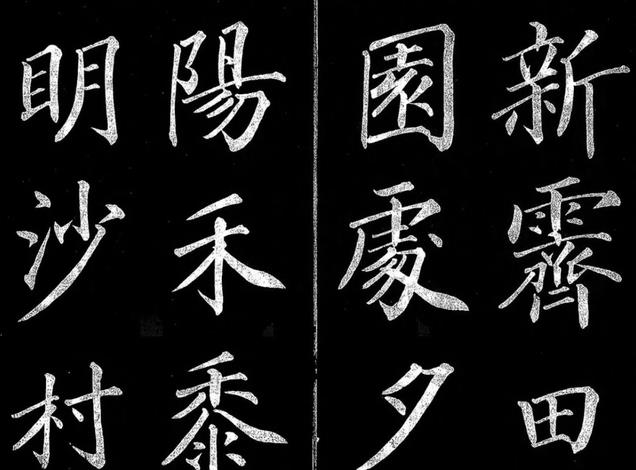 新霽田
園處夕
陽禾黍
明沙村